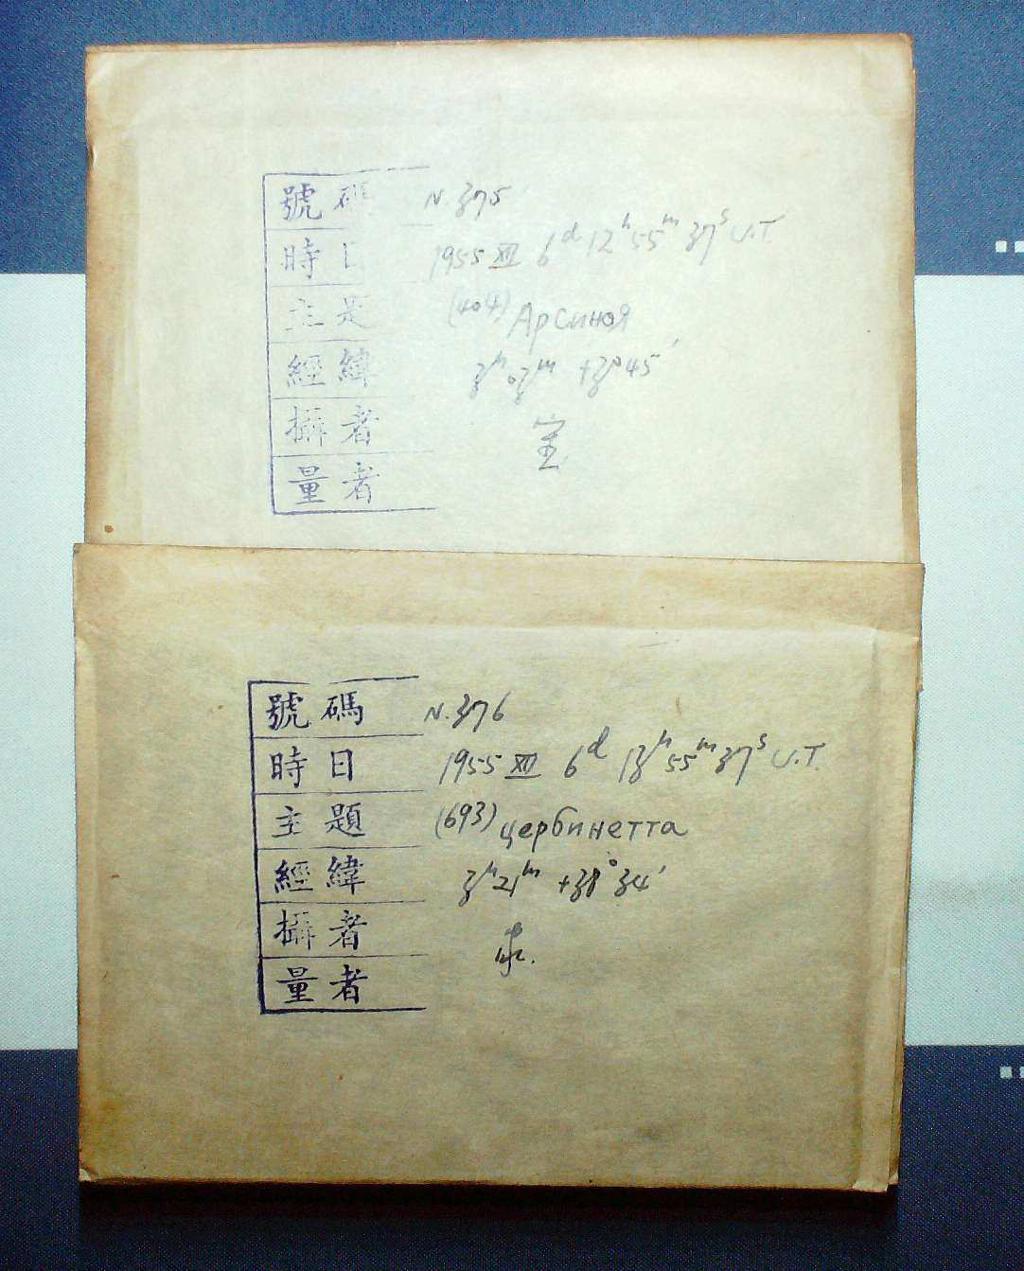 號碼 N. 375
時 1955 XII 6ᵈ 12ʰ 55ᵐ 37ˢ U.T.
主題 (404) Арсиноя
經緯 3ʰ 03ᵐ +3° 45′
攝者
量者
號碼 N. 376
時日 1955 XII 6ᵈ 13ʰ 55ᵐ 37ˢ U.T.
主題 (693) Цербинетта
經緯 3ʰ 21ᵐ +38° 34′
攝者
量者